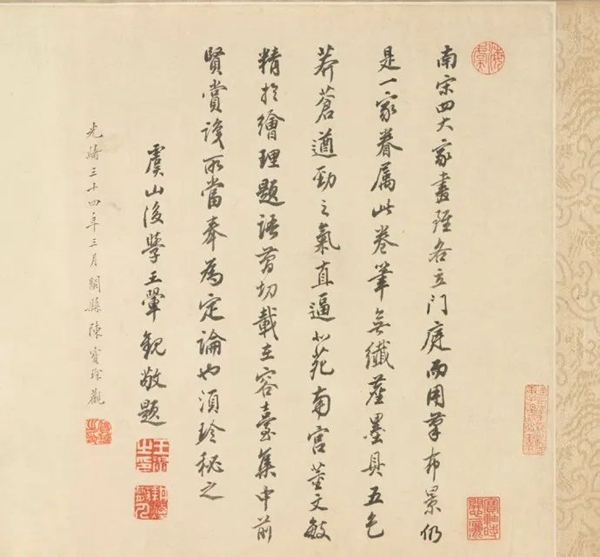 南宋四大家畫雖各立門庭而用筆布景仍
是一家眷屬此卷筆無纖塵墨具五色
莽蒼遒勁之氣直逼北苑南宮董文敏
精於繪理題語剪切載在容臺集中前
賢賞識所當奉為定論也須珍秘之
虞山後學王翬觀敬題
光緒三十四年三月閩縣陳寶琛觀